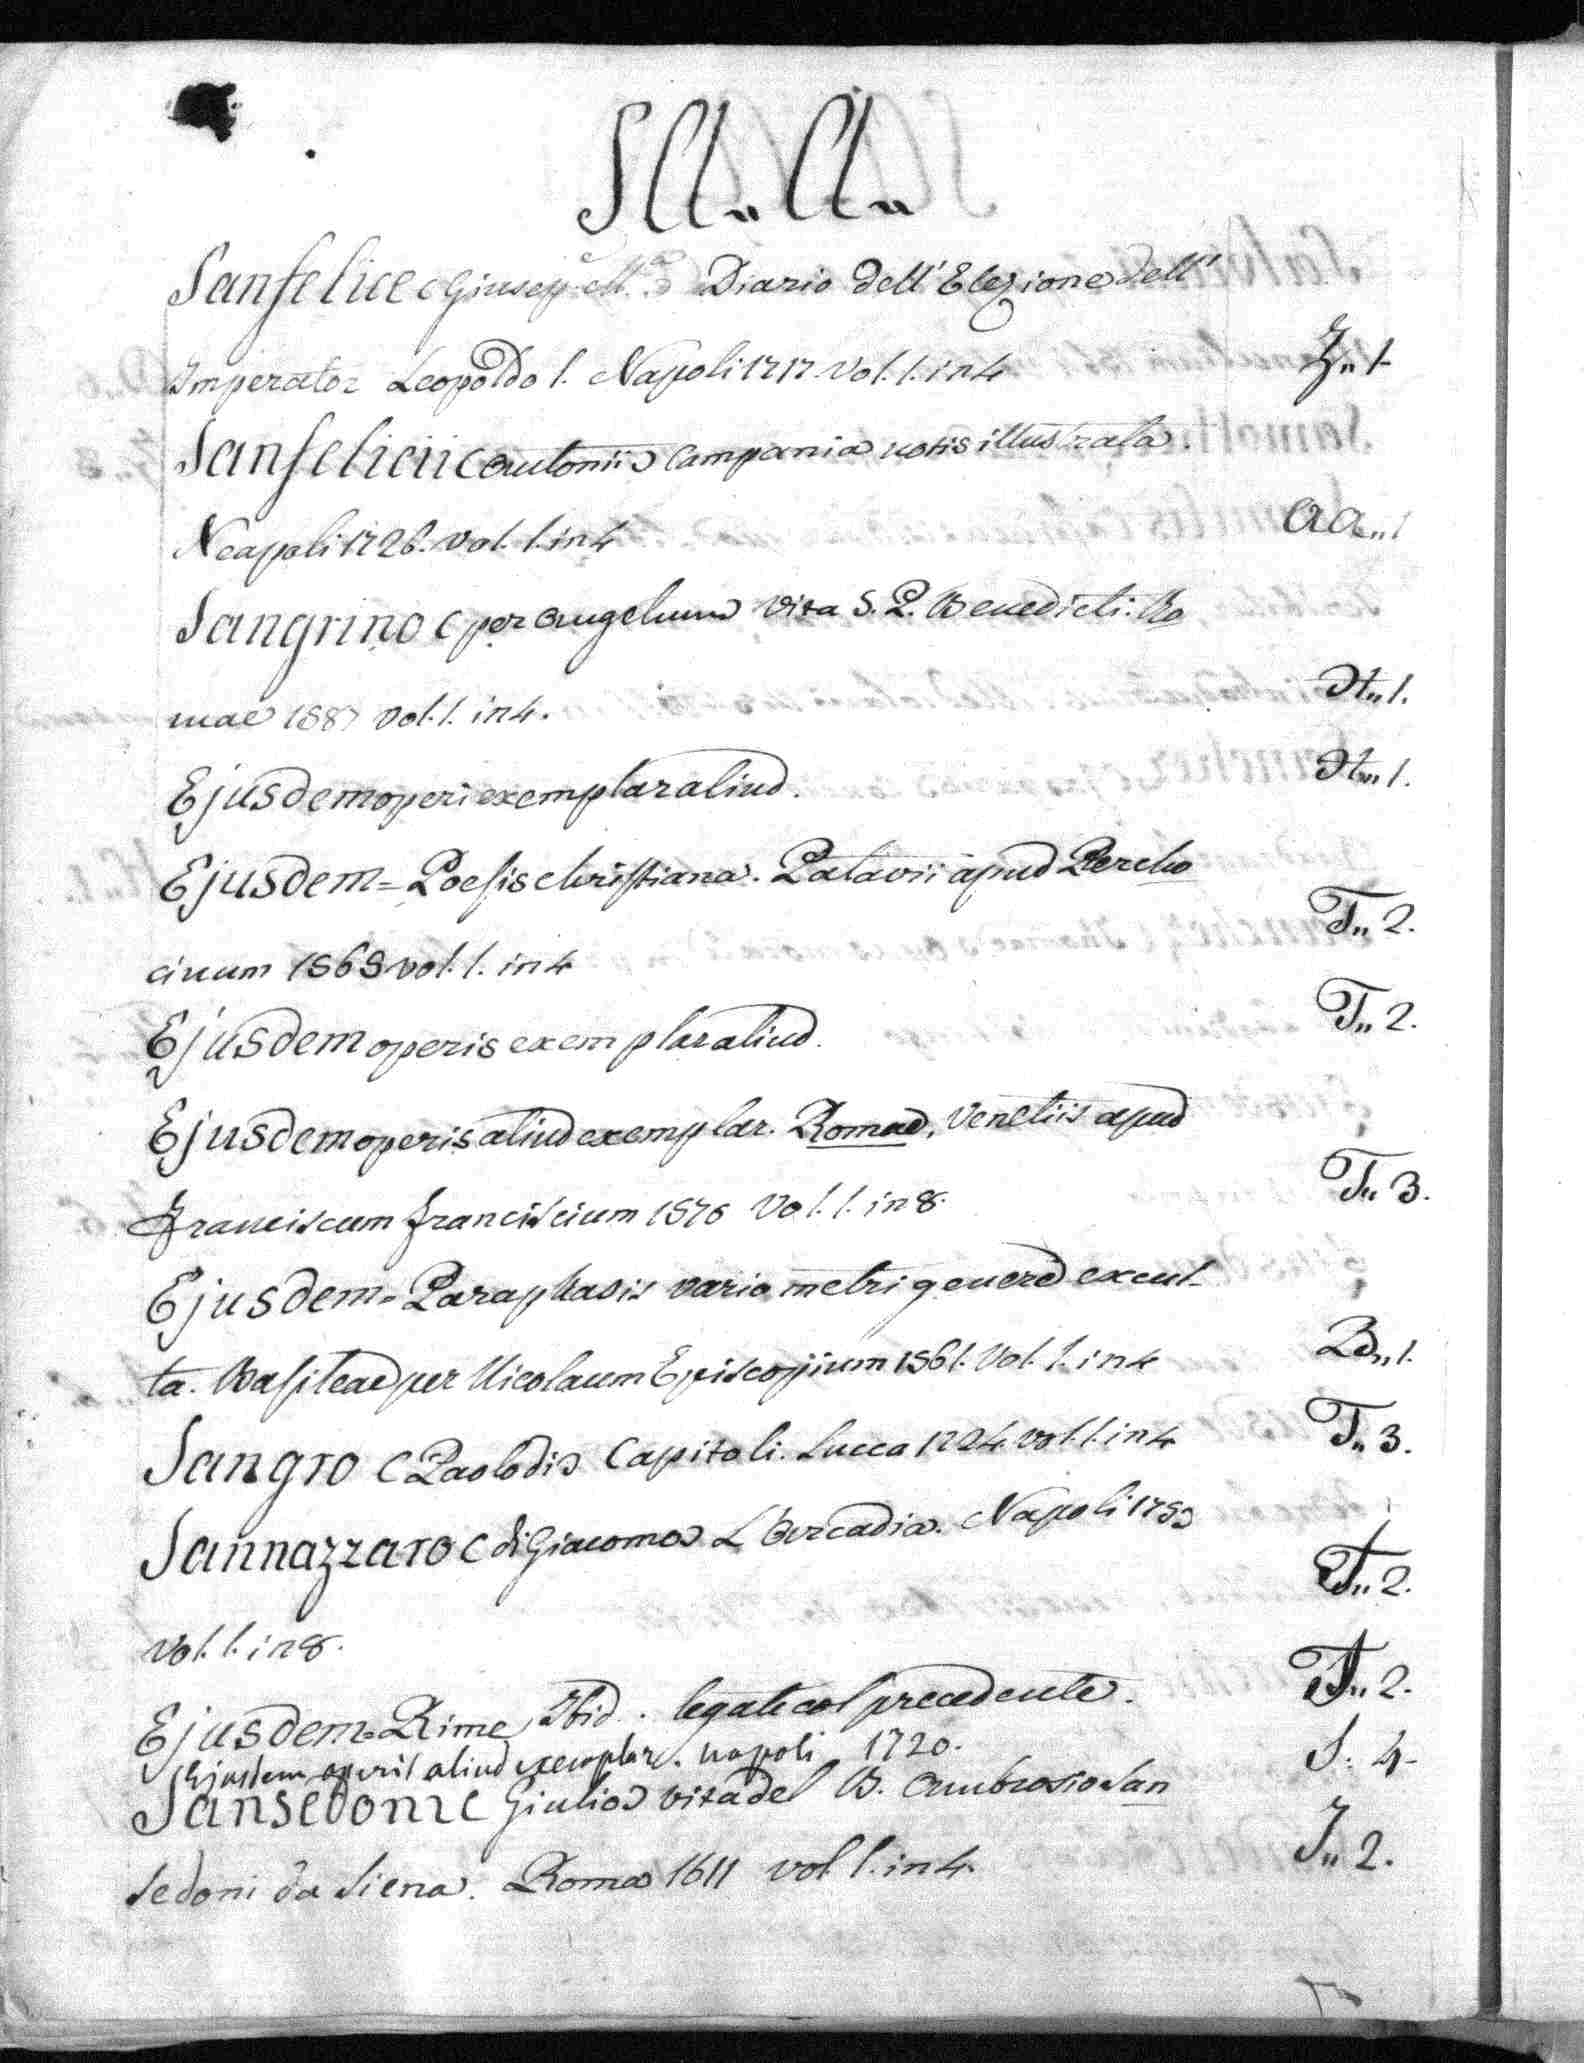 SA„ A„
Sanfelice (Giusep. M.a) Diario dell' Elezione dell'
Imperator Leopoldo I. Napoli 1717. Vol. 1. in 4 Z„ 1.
Sanfelicii (Antonii) Campania notis illustrata.
Neapoli 1726. vol. 1. in 4 AA„ 1
Sangrino (per Angelum) Vita S. P. Benedicti. Ro
mae 1587 vol. 1. in 4. H„ 1.
Ejusdem operi exemplar aliud. H„ 1.
Ejusdem = Poesis christiana. Patavii apud Percho
cinum 1565 vol. 1. in 4 T„ 2.
Ejusdem operis exemplar aliud. T„ 2.
Ejusdem operis aliud exemplar. Romae, Venetiis apud
Franciscum Franciscium 1570 Vol. 1. in 8. T„ 3.
Ejusdem = Paraphrasis vario metri genere excul-
ta. Basileae per Nicolaum Episcopium 1561. Vol. 1. in 4 Bd„ 1.
Sangro (Paolo di) Capitoli. Lucca 1724. vol. 1. in 4 T„ 3.
Sannazzaro (di Giacomo) L'Arcadia. Napoli 1753
Vol. 1. in 8. T„ 2.
Ejusdem = Rime Ibid. legate col precedente. T„ 2.
Ejusdem operis aliud exemplar. napoli 1720. S. 4
Sansedoni (Giulio) vita del B. Ambrosio San
sedoni da Siena. Roma 1611 vol. 1. in 4. I„ 2.